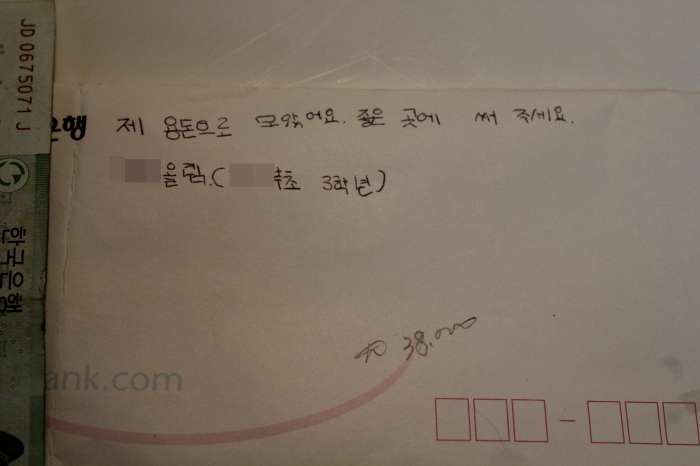 JD 0675071 J
한국은행
은행
제 용돈으로 모았어요. 좋은 곳에 써 주세요.
올림. ( 초 3학년)
₩ 38,000
ank.com